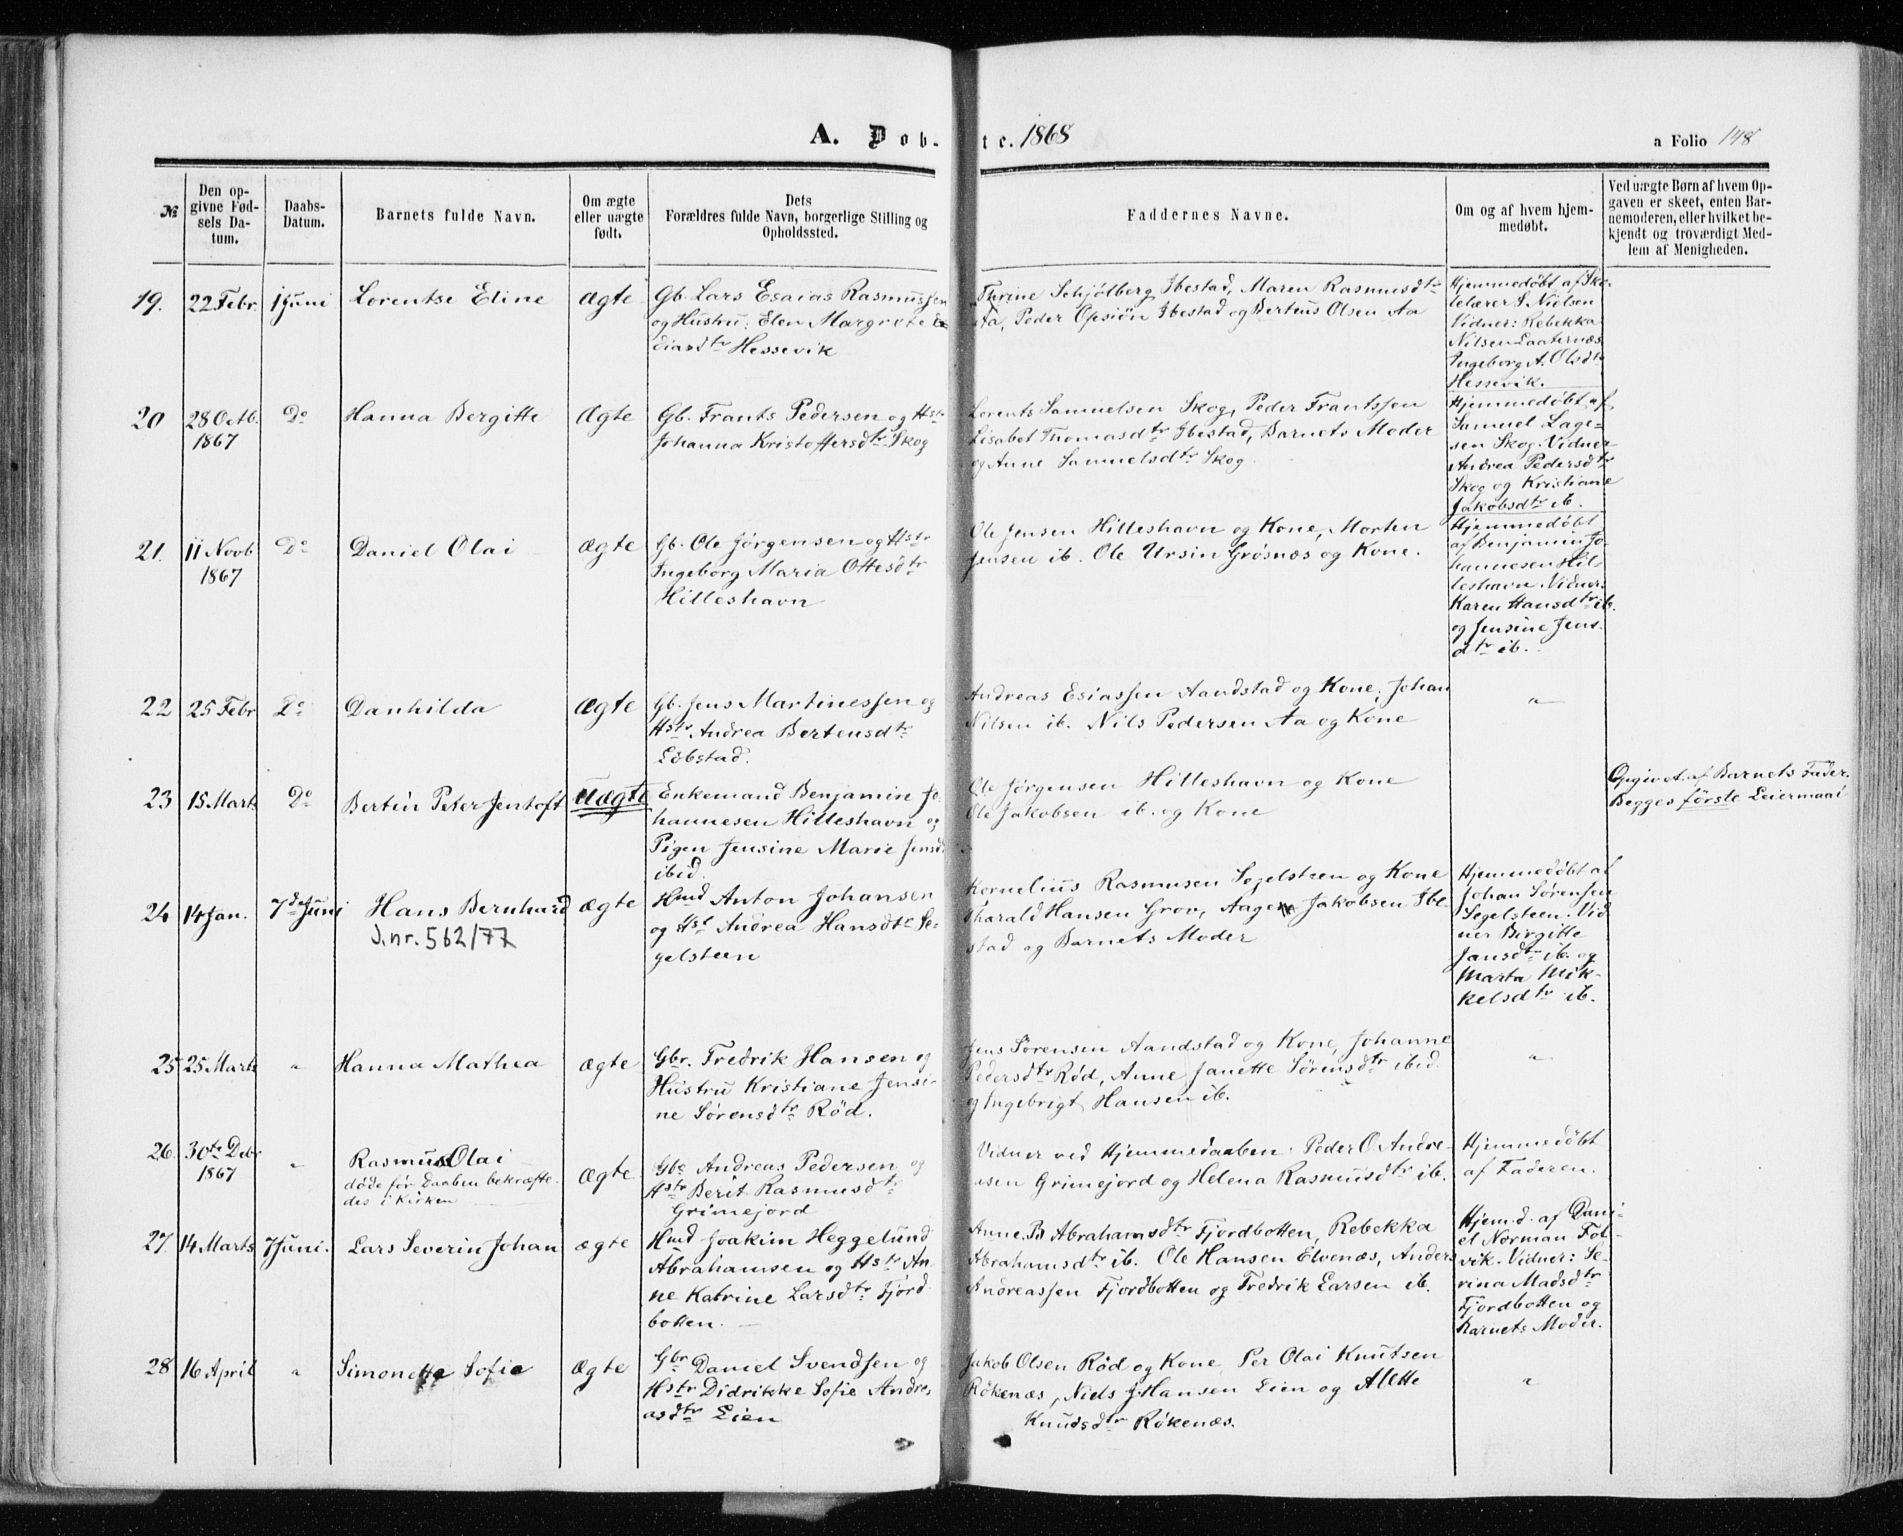 A. Dob. tc. 1868
a Folio 148
№
Den op-
givne Fød-
sels Da-
tum.
Daabs-
Datum.
Barnets fulde Navn.
Om ægte
eller uægte
født.
Dets
Forældres fulde Navn, borgerlige Stilling og
Opholdssted.
Faddernes Navne.
Om og af hvem hjem-
medøbt.
Ved uægte Børn af hvem Op-
gaven er skeet, enten Bar-
nemoderen, eller hvilket be-
kjendt og troværdigt Med-
lem af Menigheden.
19.
22 Febr.
1 Juni
Lorentse Eline
Ægte
Gb. Lars Esaias Rasmussen
og Hustru: Elen Margrete
diardtr Hessevik
Thrine Schjølberg Ibestad, Maren Rasmusdtr
Aa, Peder Opsiön Ibestad og Berteus Olsen Aa
Hjemmedøbt af Sko-
lelærer J. Nielsen
Vidner: Rebekka
Nilsen Laaternæs
Ingeborg A. Olsdtr
Hessevik.
20
28 Octb.
1867
Do
Hanna Bergitte
Ægte
Gb. Frants Pedersen og Hstr
Johanna Kristoffersdtr Skog
Lorents Samuelsen Skog, Peder Frantssen
Lisabet Thomasdtr Ibestad, Barnets Moder
og Anne Samuelsdtr Skog
Hjemmedøbt af
Samuel Lage-
sen Skog. Vidner
Andrea Pedersdtr
Skog og Kristiane
Jakobsdtr ib.
21.
11 Novb
1867
Do
Daniel Olai
ægte
Gb. Ole Jørgensen og Hstr
Ingeborg Maria Ottesdtr
Hilleshavn
Ole Jensen Hilleshavn og Kone, Morten
Jensen ib. Ole Ursin Grøsnæs og Kone.
Hjemmedøbt
af Benjamin Jo-
hannesen Hil-
leshavn. Vidner:
Karen Hansdtr ib.
og Jensine Jens-
dtr ib.
22
25 Febr
Do
Danhilda
ægte
Gb. Jens Martinessen og
Hstr Andrea Berteusdtr
Løbstad.
Andreas Esiassen Aandstad og Kone, Johan
Nilsen ib. Nils Pedersen Aa og Kone
"
23
15 Marts
Do
Bertin Peter Jentoft
Uægte
Enkemand Benjamin Jo-
hannesen Hilleshavn og
Pigen Jensine Marie Jensd.
ibid.
Ole Jørgensen Hilleshavn og Kone
Ole Jakobsen ib. og Kone
Opgivet af Barnets Fader.
Begges første Leiermaal
24
14 Jan.
7de Juni
Hans Bernhard
J.nr. 562/77
ægte
Hmd Anton Johansen
og Hst Andrea Hansdtr Se-
gelsteen
Kornelius Rasmusen Segelsteen og Kone
Tharald Hansen Grov, Aage Jakobsen Ibe-
stad og Barnets Moder
Hjemmedøbt af
Johan Sørensen
Segelsteen. Vid
ner Birgitte
Jansdtr ib. og
Marta Mik-
kelsdtr ib.
25
25 Marts
"
Hanna Mathea
ægte
Gbr. Fredrik Hansen og
Hustru Kristiane Jensi-
ne Sørensdtr Rød.
Jens Sørensen Aandstad og Kone, Johanne
Pedersdtr Rød, Anne Janette Sørensdtr ibid.
og Ingebrigt Hansen ib.
"
26.
30te Debr
1867
"
Rasmus Olai
døde før Daaben bekræfte-
des i Kirken
Ægte
Gbr Andreas Pedersen og
Hstr Berit Rasmusdtr
Grimejord
Vidner ved Hjemmedaaben: Peder O. Andre-
asen Grimejord og Helena Rasmusdtr ib.
Hjemmedøbt
af Faderen.
27.
14 Marts
7 Juni.
Lars Severin Johan
ægte
Hmd Joakim Heggelund
Abrahamsen og Hstr An-
ne Katrine Larsdtr Fjord-
botten.
Anne B Abrahamsdtr Fjordbotten, Rebekka
Abrahamsdtr ib. Ole Hansen Elvenæs, Anders
Andreassen Fjordbotten og Fredrik Larsen ib.
Hjemd. af Dani-
el Norman Fol-
vik. Vidner: Se-
rina Madsdtr
Fjordbotten og
Barnets Moder.
28
16 April
"
Simonette Sofie
Ægte
Gbr Daniel Svendsen og
Hstr Didrikke Sofie Andre-
asdtr Lien
Jakob Olsen Rød og Kone, Per Olai Knutsen
Røkenæs, Niels J Hansen Lien og Alette
Knudsdtr Røkenæs.
"